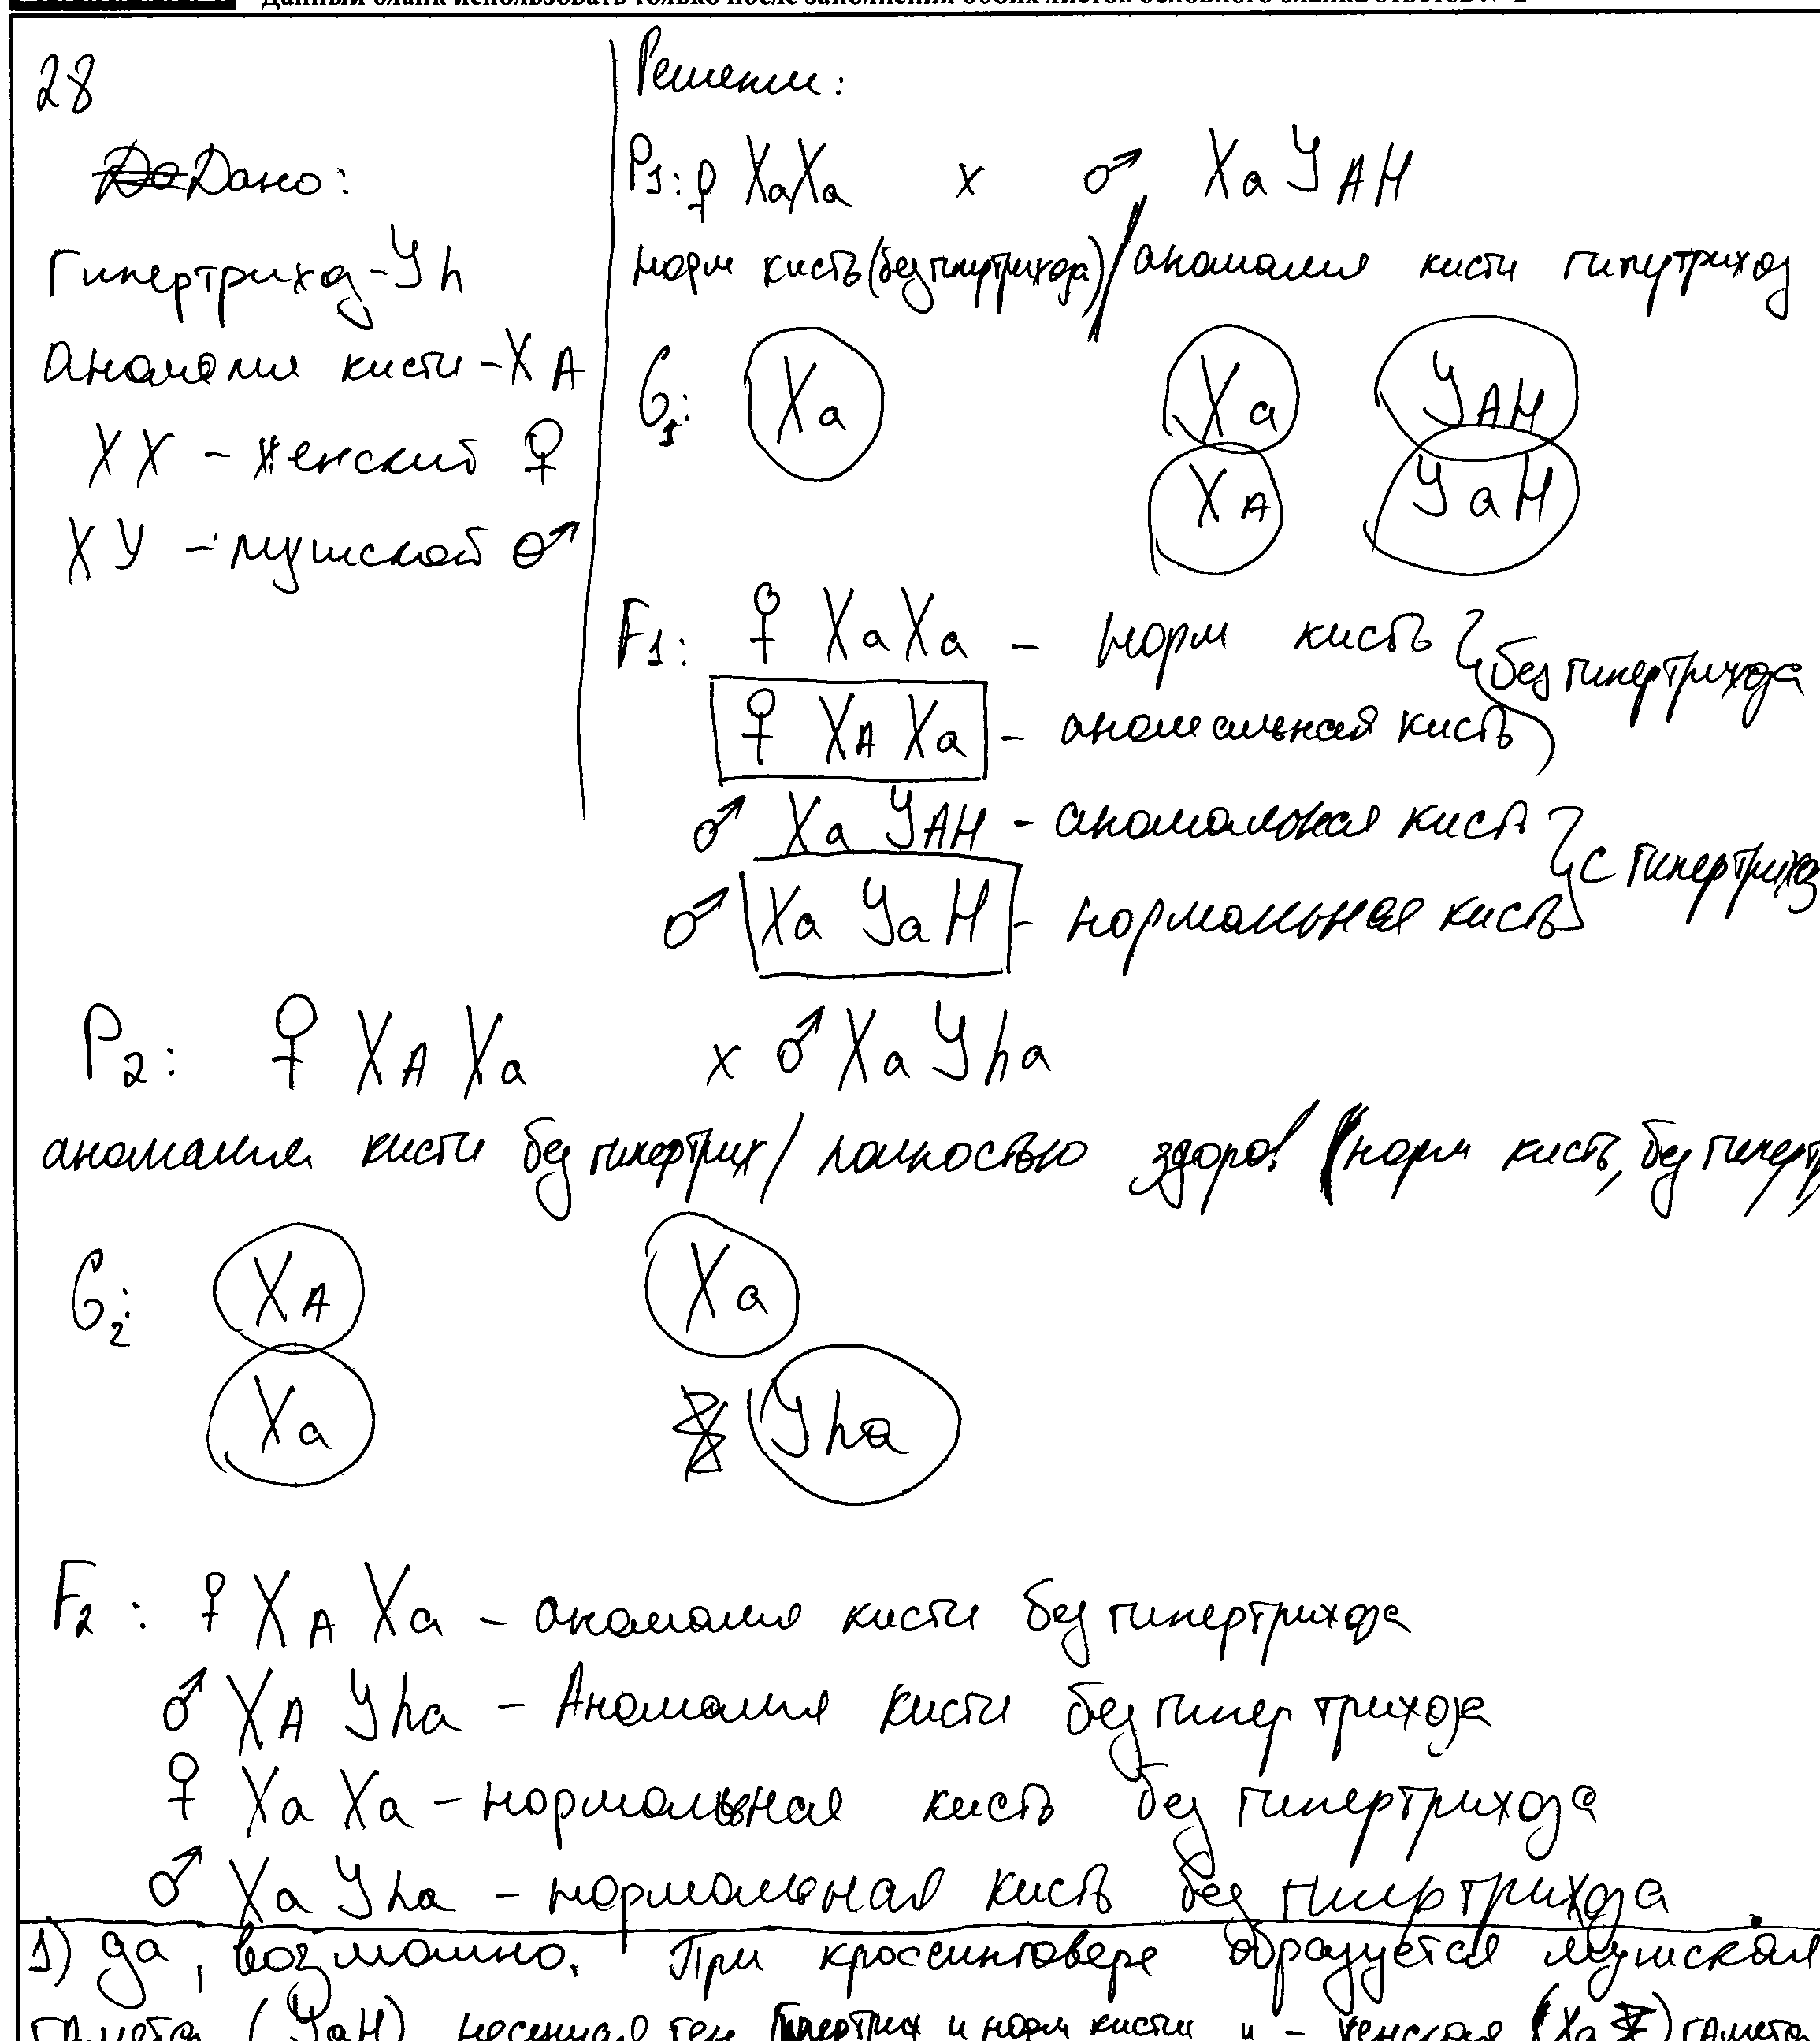 Данный бланк использовать только после заполнения обоих листов основного бланка ответов № 2
28
Дано:
Гипертрихоз - Yh
Аномалия кисти - XA
XX - женский ♀
XY - мужской ♂
Решение:
P1: ♀ XaXa x ♂ XaYAH
норм кисть (без гипертрихоза) / аномалия кисти гипертрихоз
G1: Xa Xa YAH
XA YaH
F1: ♀ XaXa - норм кисть } без гипертрихоза
♀ XAXa - аномальная кисть
♂ XaYAH - аномальная кисть } с гипертрихоз
♂ XaYaH - нормальная кисть
P2: ♀ XAXa x ♂ XaYha
аномалия кисти без гипертрих / полностью здоров (норм кисть, без гиперт
G2: XA Xa
Xa Yha
F2: ♀ XAXa - аномалия кисти без гипертрихоза
♂ XAYha - Аномалия кисти без гипертрихоза
♀ XaXa - нормальная кисть без гипертрихоза
♂ XaYha - нормальная кисть без гипертрихоза
1) да, возможно. При кроссинговере образуется мужская
гамета (YaH) несущая ген гипертрих и норм кисти и - женская (Xa) гамета